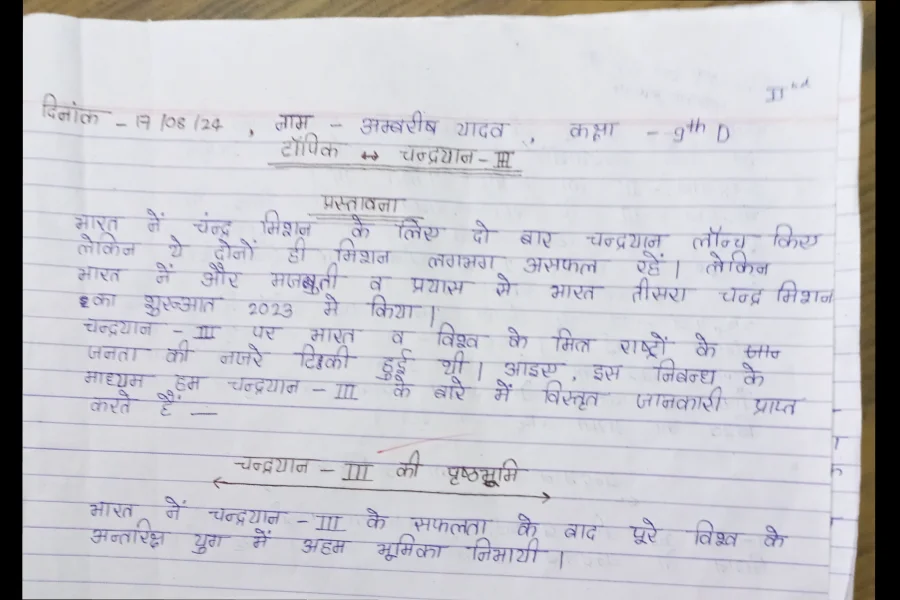 IInd
दिनांक - 17/08/24 , नाम - अम्बरीष यादव , कक्षा - 9th D
टॉपिक ↔ चन्द्रयान - III
प्रस्तावना
भारत नें चंद्र मिशन के लिए दो बार चन्द्रयान लॉन्च किए
लेकिन ये दोनों ही मिशन लगभग असफल रहें । लेकिन
भारत नें और मजबुती व प्रयास से भारत तीसरा चन्द्र मिशन
का शुरूआत 2023 मे किया ।
चन्द्रयान - III पर भारत व विश्व के मित्र राष्ट्रों के
जनता की नजरे टिकी हुई थी । आइए , इस निबन्ध के
माध्यम हम चन्द्रयान - III के बारे में विस्तृत जानकारी प्राप्त
करते हैं —
चन्द्रयान - III की पृष्ठभूमि
भारत नें चन्द्रयान - III के सफलता के बाद पूरे विश्व के
अन्तरिक्ष युग में अहम भूमिका निभायी ।